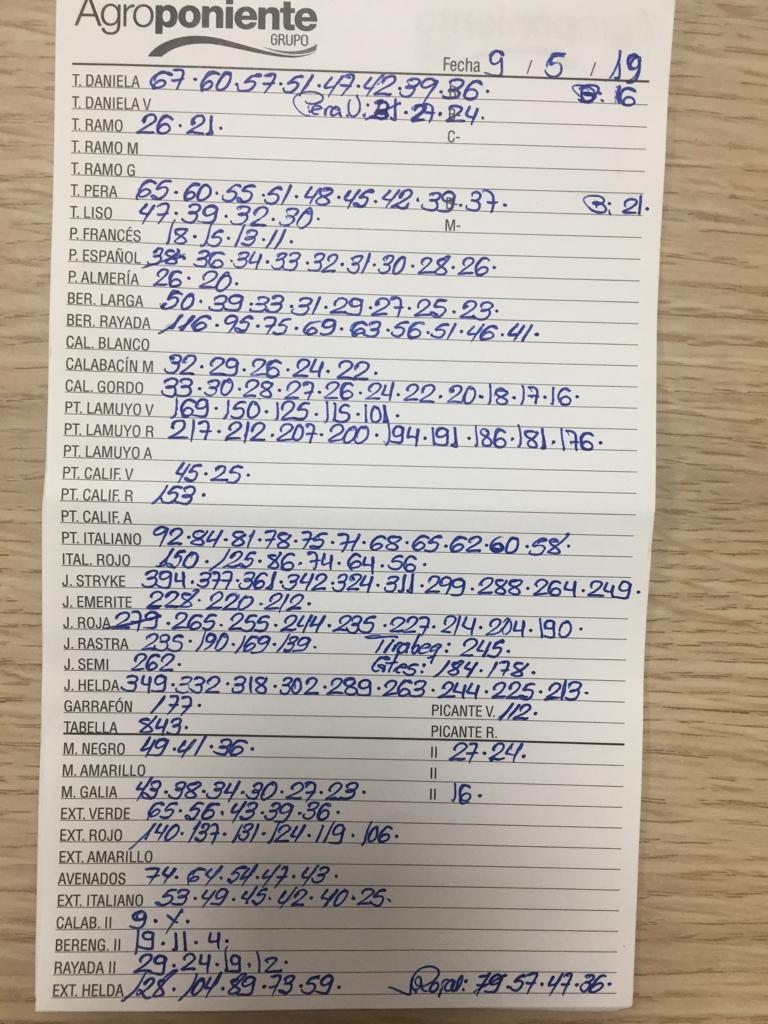 Agroponiente
GRUPO
Fecha 9 / 5 / 19
T. DANIELA 67·60·57·51·47·42·39·36· B: 16
T. DANIELA V Pera V: 31·27·24·
T. RAMO 26·21· C-
T. RAMO M
T. RAMO G
T. PERA 65·60·55·51·48·45·42·39·37· B: 21·
T. LISO 47·39·32·30· M-
P. FRANCÉS 18·15·13·11·
P. ESPAÑOL 38· 36·34·33·32·31·30·28·26·
P. ALMERÍA 26·20·
BER. LARGA 50·39·33·31·29·27·25·23·
BER. RAYADA 116·95·75·69·63·56·51·46·41·
CAL. BLANCO
CALABACÍN M 32·29·26·24·22·
CAL. GORDO 33·30·28·27·26·24·22·20·18·17·16·
PT. LAMUYO V 169·150·125·115·101·
PT. LAMUYO R 217·212·207·200·194·191·186·181·176·
PT. LAMUYO A
PT. CALIF. V 45·25·
PT. CALIF. R 153·
PT. CALIF. A
PT. ITALIANO 92·84·81·78·75·71·68·65·62·60·58·
ITAL. ROJO 150·125·86·74·64·56·
J. STRYKE 394·377·361·342·324·311·299·288·264·249·
J. EMERITE 228·220·212·
J. ROJA 279·265·255·244·235·227·214·204·190·
J. RASTRA 235·190·169·139· Tirabeq: 245·
J. SEMI 262· Gtes: 184·178·
J. HELDA 349·332·318·302·289·263·244·225·213·
GARRAFÓN 177· PICANTE V. 112·
TABELLA 843· PICANTE R.
M. NEGRO 49·41·36· II 27·24·
M. AMARILLO II
M. GALIA 43·38·34·30·27·23· II 16·
EXT. VERDE 65·56·43·39·36·
EXT. ROJO 140·137·131·124·119·106·
EXT. AMARILLO
AVENADOS 74·64·54·47·43·
EXT. ITALIANO 53·49·45·42·40·25·
CALAB. II 9·
BERENG. II 19·11·4·
RAYADA II 29·24·19·12·
EXT. HELDA 128·104·89·73·59· 79·57·47·36·